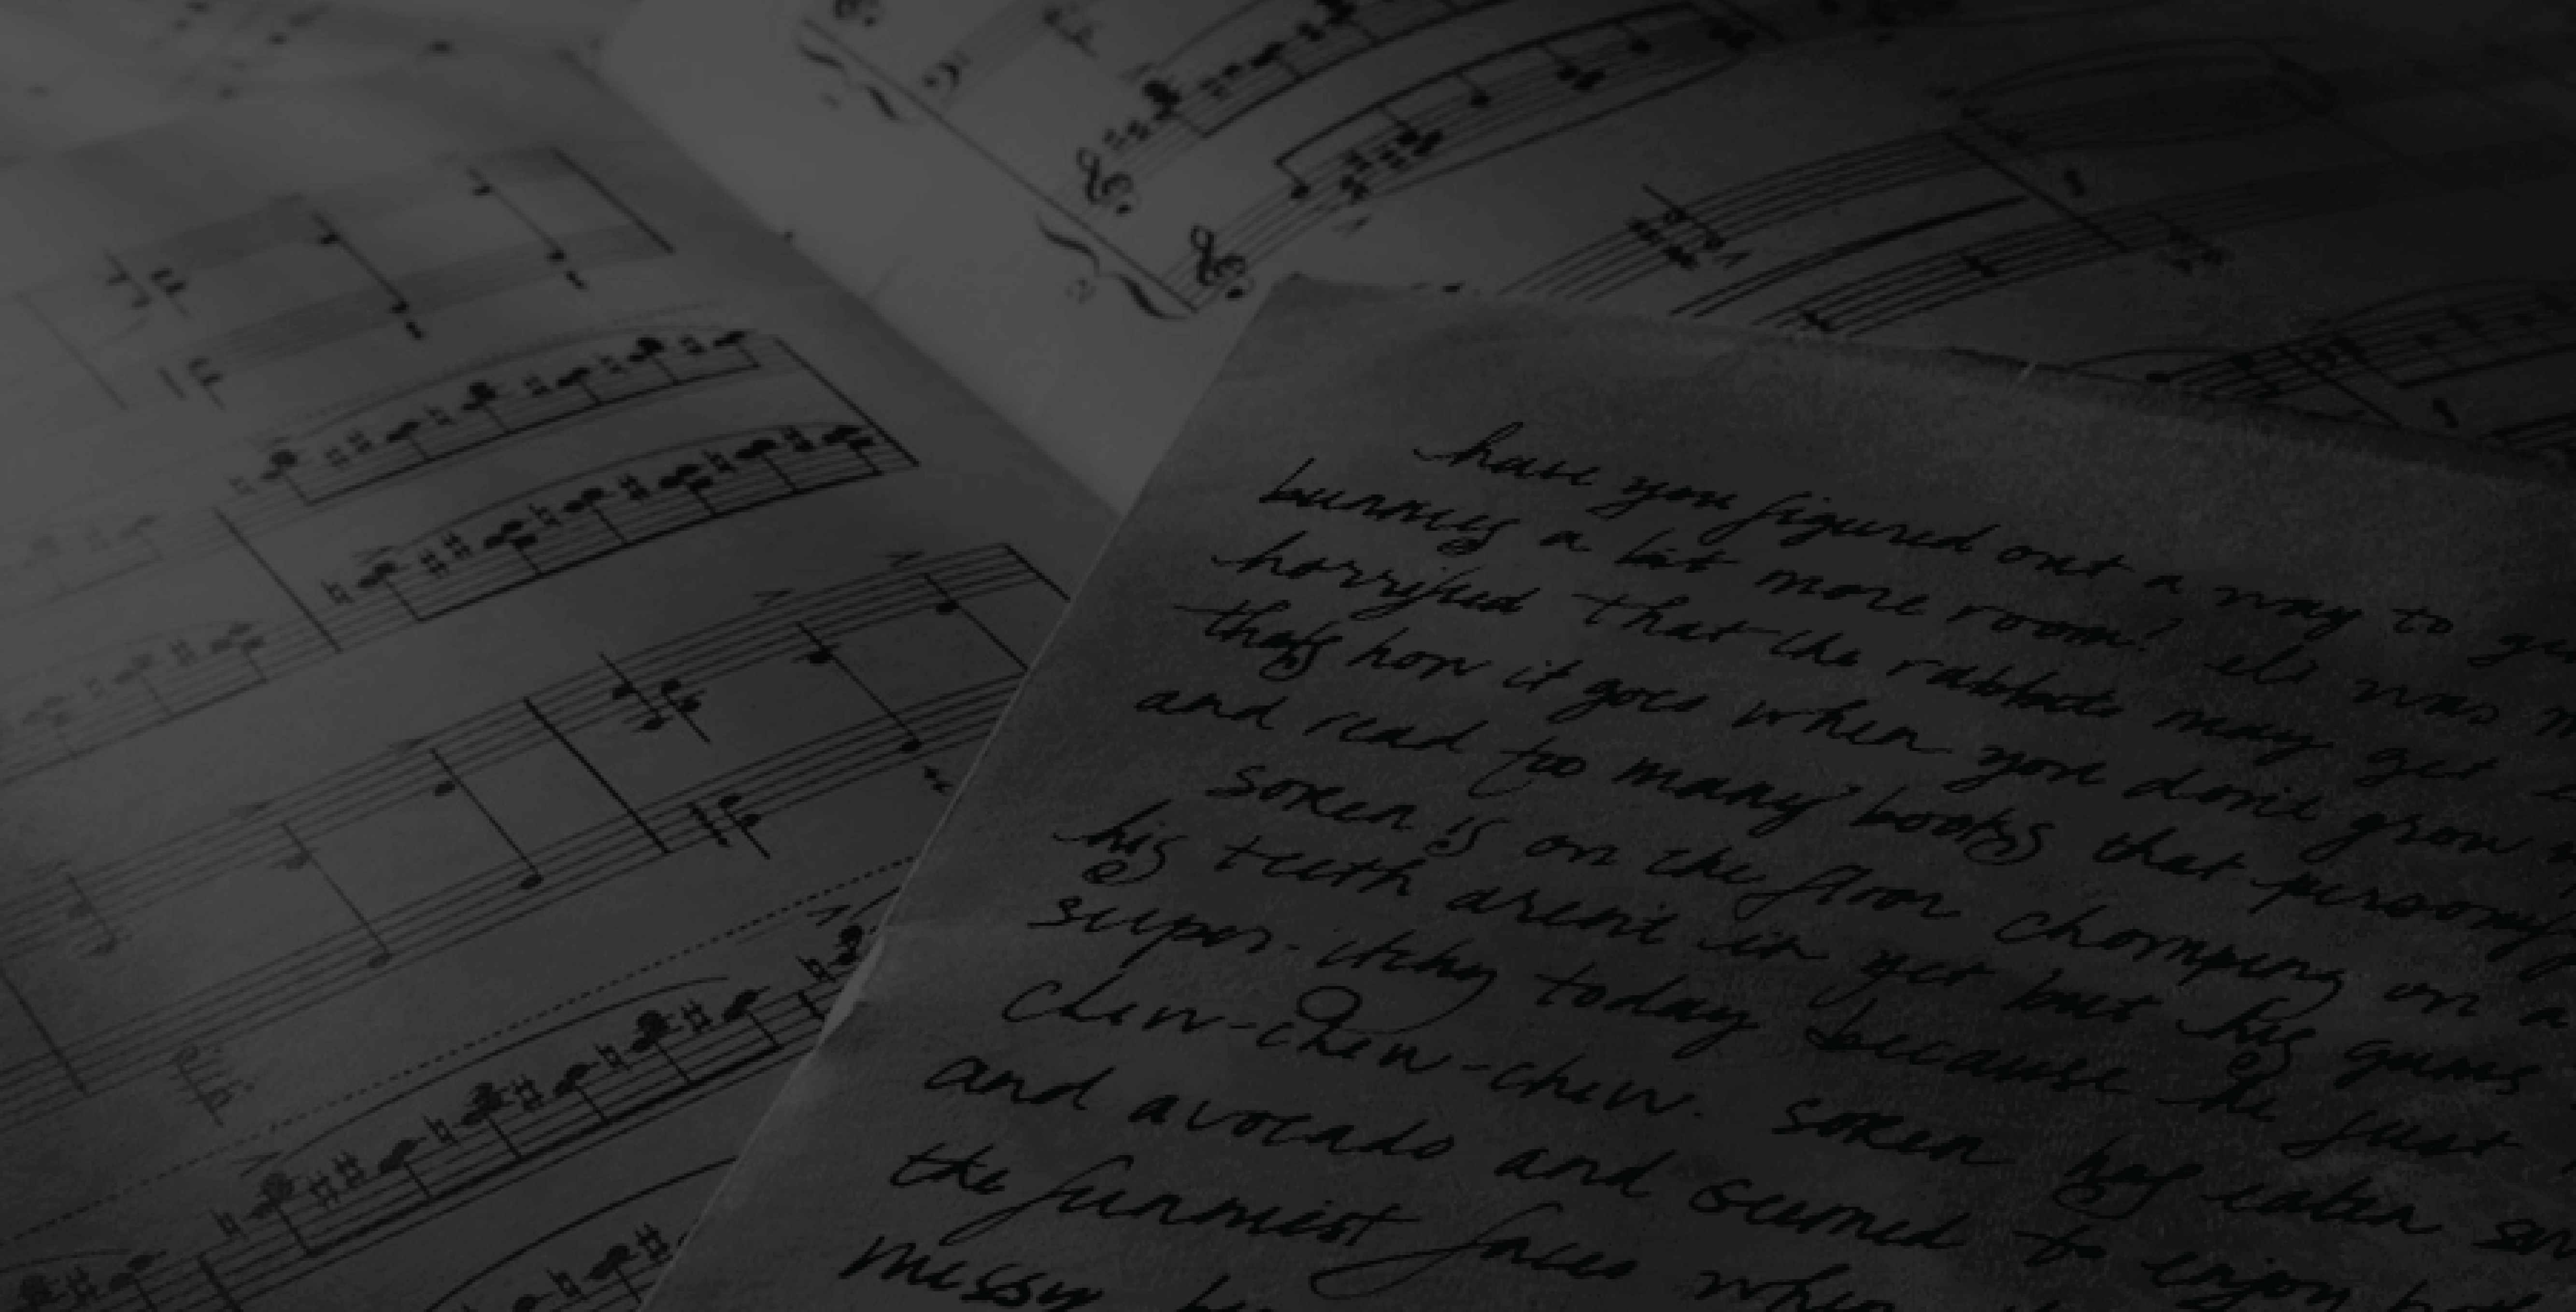 have you figured out a way to
bunnies a bit more room? eli was
horrified that the rabbits may get
that's how it goes when you don't grow
and read too many books that
soren is on the floor chomping on a
his teeth aren't in yet but his gums
super-itchy today because he just
chew-chew-chew. soren has eaten
and avocado and seemed to enjoy
the funniest faces when
messy